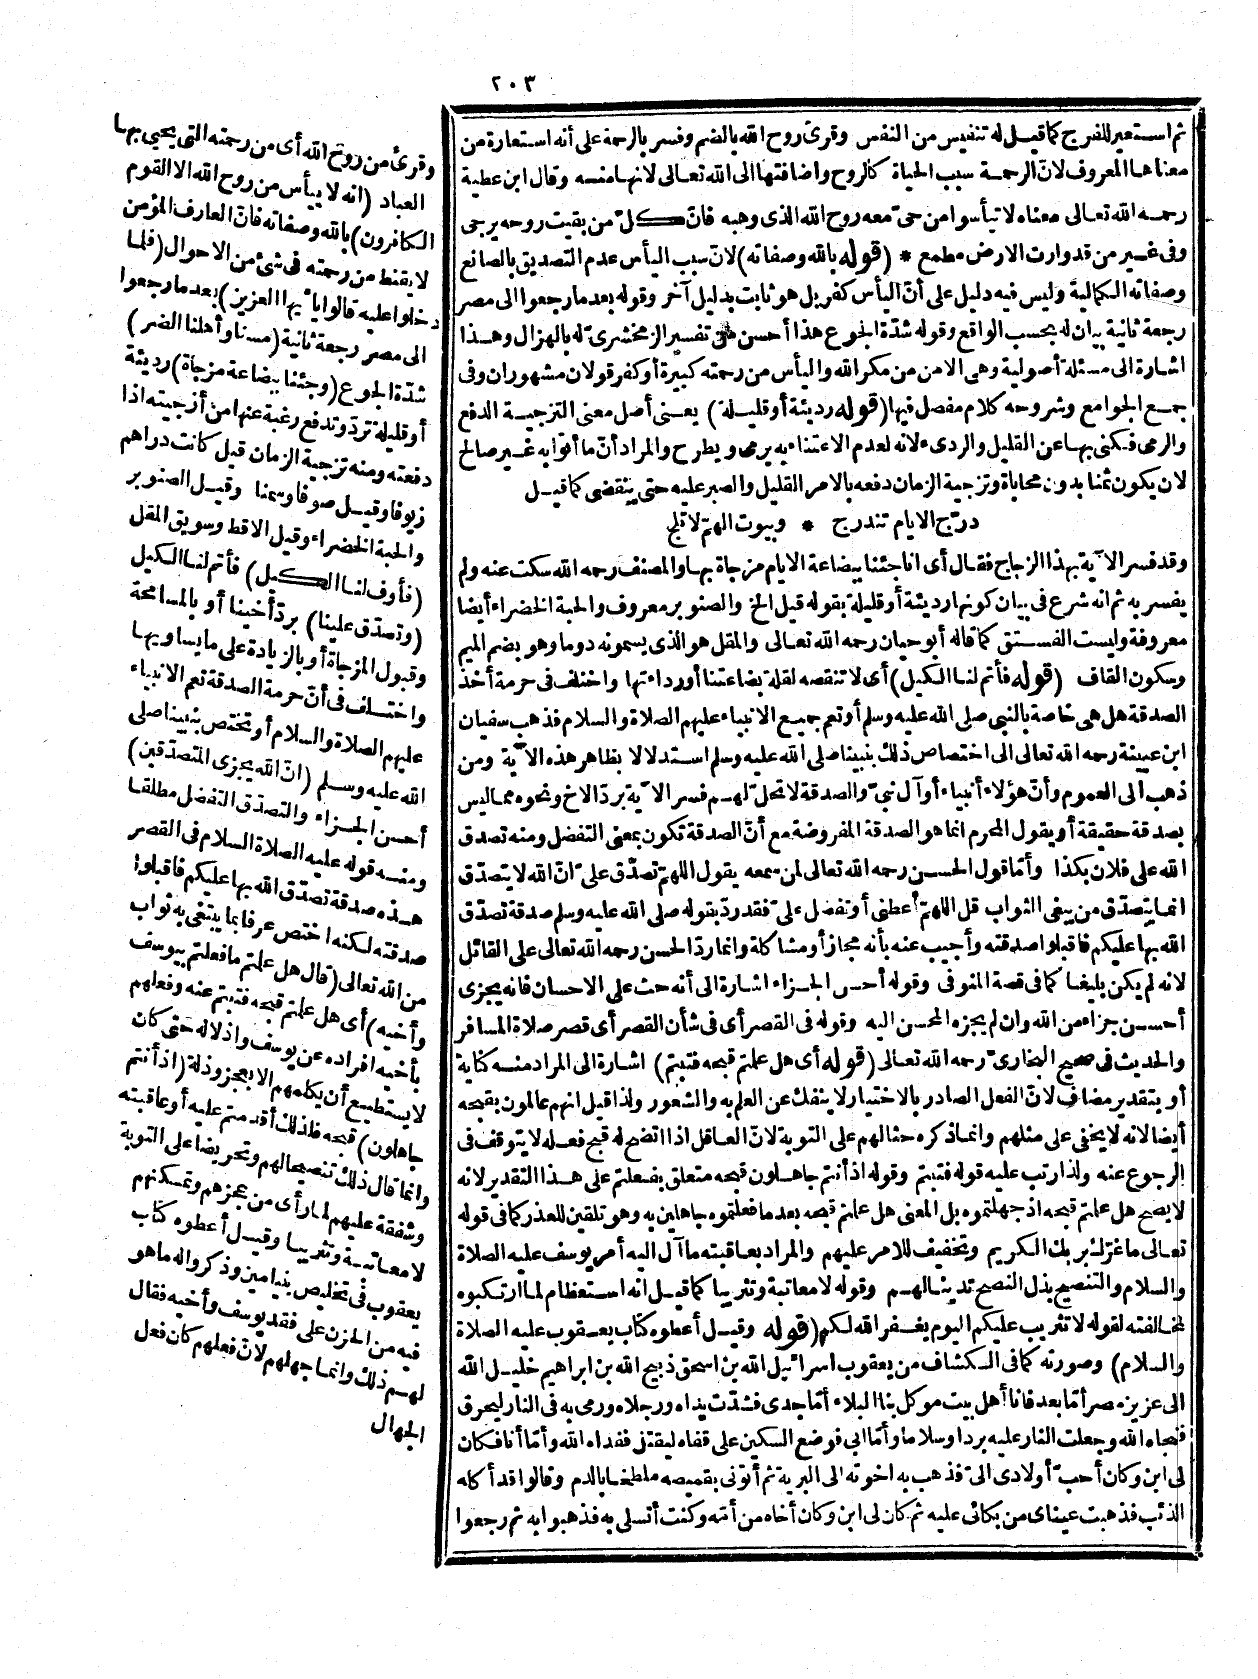 ٢٠٣
ثم استعير للفرج كما قيل له تنفيس من النفس وقرئ روح الله بالضم وفسر بالرحمة على أنه استعارة من
معناها المعروف لان الرحمة سبب الحياة كالروح واضافتها الى الله تعالى لانها منه وقال ابن عطية
رحمه الله تعالى معناه لا تيأسوا من حى معه روح الله الذى وهبه فان كل من بقيت روحه يرجى
وفى غير من قد وارت الارض مطمع * (قوله بالله وصفاته) لان سبب اليأس عدم التصديق بالصانع
وصفاته الكمالية وليس فيه دليل على أن اليأس كفر بل هو ثابت بدليل آخر وقوله بعد ما رجعوا الى مصر
رجعة ثانية بيان له بحسب الواقع وقوله شدة الجوع هذا أحسن من تفسير الزمخشرى له بالهزال وهذا
اشارة الى مسئلة أصولية وهى الامن من مكر الله واليأس من رحمته كبيرة أو كفر قولان مشهوران وفى
جمع الجوامع وشروحه كلام مفصل فيها (قوله رديئة أو قليلة) يعنى أصل معنى التزجية الدفع
والرمى فكنى بها عن القليل والردىء لانه لعدم الاعتناء به يرمى ويطرح والمراد أن ما أتوا به غير صالح
لان يكون ثمنا بدون محاباة وتزجية الزمان دفعه بالامر القليل والصبر عليه حتى ينقضى كما قيل
درج الايام تندرج * وبيوت الهم لا تلج
وقد فسر الآية بهذا الزجاج فقال أى انا جئنا ببضاعة الايام مزجاة بها والمصنف رحمه الله سكت عنه ولم
يفسر به ثم انه شرع فى بيان كونها رديئة أو قليلة بقوله قيل الخ والصنوبر معروف والحبة الخضراء أيضا
معروفة وليست الفستق كما قاله أبو حيان رحمه الله تعالى والمقل هو الذى يسمونه دوما وهو بضم الميم
وسكون القاف (قوله فأتم لنا الكيل) أى لا تنقصه لقلة بضاعتنا أو رداءتها واختلف فى حرمة أخذ
الصدقة هل هى خاصة بالنبى صلى الله عليه وسلم أو تعم جميع الانبياء عليهم الصلاة والسلام فذهب سفيان
ابن عيينة رحمه الله تعالى الى اختصاص ذلك بنبينا صلى الله عليه وسلم استدلالا بظاهر هذه الآية ومن
ذهب الى العموم وأن هؤلاء أنبياء أو آل نبى والصدقة لا تحل لهم فسر الآية برد الاخ ونحوه مما ليس
بصدقة حقيقة أو يقول المحرم انما هو الصدقة المفروضة مع أن الصدقة تكون بمعنى التفضل ومنه تصدق
الله على فلان بكذا وأما قول الحسن رحمه الله تعالى لمن سمعه يقول اللهم تصدق على ان الله لا يتصدق
انما يتصدق من يبغى الثواب قل اللهم أعطنى أو تفضل على فقد رد بقوله صلى الله عليه وسلم صدقة تصدق
الله بها عليكم فاقبلوا صدقته وأجيب عنه بأنه مجاز أو مشاكلة وانما رد الحسن رحمه الله تعالى على القائل
لانه لم يكن بليغا كما فى قصة المتوفى وقوله أحسن الجزاء اشارة الى أنه حث على الاحسان فانه يجزى
أحسن جزاء من الله وان لم يجزه المحسن اليه وقوله فى القصر أى فى شأن القصر أى قصر صلاة المسافر
والحديث فى صحيح البخارى رحمه الله تعالى (قوله أى هل علمتم قبحه فتبتم) اشارة الى المراد منه كناية
أو بتقدير مضاف لان الفعل الصادر بالاختيار لا ينفك عن العلم به والشعور ولذا قيل انهم عالمون بقبحه
أيضا لانه لا يخفى على مثلهم وانما ذكره حثا لهم على التوبة لان العاقل اذا اتضح له قبح فعله لا يتوقف فى
الرجوع عنه ولذا رتب عليه قوله فتبتم وقوله اذ أنتم جاهلون قبحه متعلق بفعلتم على هذا التقدير لانه
لا يصح هل علمتم قبحه اذ جهلتموه بل المعنى هل علمتم قبحه بعد ما فعلتموه جاهلين به وهو تلقين للعذر كما فى قوله
تعالى ما غرك بربك الكريم وتخفيف للامر عليهم والمراد بعاقبته ما آل اليه أمر يوسف عليه الصلاة
والسلام والتنصيح بذل النصح تدينا لهم وقوله لا معاتبة وتثريبا كما قيل انه استعظام لما ارتكبوه
لمخالفته لقوله لا تثريب عليكم اليوم يغفر الله لكم (قوله وقيل أعطوه كتاب يعقوب عليه الصلاة
والسلام) وصورته كما فى الكشاف من يعقوب اسرائيل الله بن اسحق ذبيح الله بن ابراهيم خليل الله
الى عزيز مصر أما بعد فانا أهل بيت موكل بنا البلاء أما جدى فشدت يداه ورجلاه ورمى به فى النار ليحرق
فنجاه الله وجعلت النار عليه بردا وسلاما وأما أبى فوضع السكين على قفاه ليقتل ففداه الله وأما أنا فكان
لى ابن وكان أحب أولادى الى فذهب به اخوته الى البرية ثم أتونى بقميصه ملطخا بالدم وقالوا قد أكله
الذئب فذهبت عيناى من بكائى عليه ثم كان لى ابن وكان أخاه من أمه وكنت أتسلى به فذهبوا به ثم رجعوا
وقرئ من روح الله أى من رحمته التى يحيى بها
العباد (انه لا ييأس من روح الله الا القوم
الكافرون) بالله وصفاته فان العارف المؤمن
لا يقنط من رحمته فى شئ من الاحوال (فلما
دخلوا عليه قالوا يا أيها العزيز) بعد ما رجعوا
الى مصر رجعة ثانية (مسنا وأهلنا الضر)
شدة الجوع (وجئنا ببضاعة مزجاة) رديئة
أو قليلة ترد وتدفع رغبة عنها من أزجيته اذا
دفعته ومنه تزجية الزمان قيل كانت دراهم
زيوفا وقيل صوفا وسمنا وقيل الصنوبر
والحبة الخضراء وقيل الاقط وسويق المقل
(فأوف لنا الكيل) فأتم لنا الكيل
(وتصدق علينا) برد أخينا أو بالمسامحة
وقبول المزجاة أو بالزيادة على ما يساويها
واختلف فى أن حرمة الصدقة تعم الانبياء
عليهم الصلاة والسلام أو تختص بنبينا صلى
الله عليه وسلم (ان الله يجزى المتصدقين)
أحسن الجزاء والتصدق التفضل مطلقا
ومنه قوله عليه الصلاة السلام فى القصر
هذه صدقة تصدق الله بها عليكم فاقبلوا
صدقته لكنه اختص عرفا بما يبتغى به ثواب
من الله تعالى (قال هل علمتم ما فعلتم بيوسف
وأخيه) أى هل علمتم قبحه فتبتم عنه وفعلهم
بأخيه افراده عن يوسف واذلاله حتى كان
لا يستطيع أن يكلمهم الا بعجز وذلة (اذ أنتم
جاهلون) قبحه فلذلك أقدمتم عليه أو عاقبته
وانما قال ذلك تنصيحا لهم وتحريضا على التوبة
وشفقة عليهم لما رأى من عجزهم وتمسكنهم
لا معاتبة وتثريبا وقيل أعطوه كتاب
يعقوب فى تخليص بنيامين وذكروا له ما هو
فيه من الحزن على فقد يوسف وأخيه فقال
لهم ذلك وانما جهلهم لان فعلهم كان فعل
الجهال